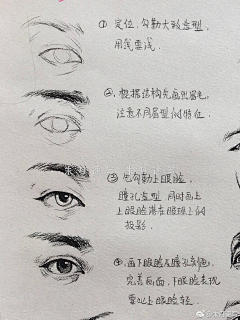 ① 定位,勾勒大致造型,
用线要浅.
②、根据结构先画出眉毛,
注意不同眉型的特征.
③ 先勾勒上眼睑,
瞳孔造型 同时画上
上眼睑潜在眼球上的
投影.
④ 画下眼睑及瞳孔颜色,
完善画面,下眼睑表现
要比上眼睑轻.